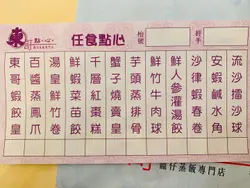 東
點·心
任食點心
枱號
經手
流沙擂沙球
安蝦鹹水角
沙律蝦春卷
鮮人參灌湯餃
鮮竹牛肉球
芋頭蒸排骨
蟹子燒賣皇
千層紅棗糕
鮮蝦菜苗餃
湯皇鮮竹卷
百醬蒸鳳爪
東哥蝦餃皇
仔蒸飯專門店